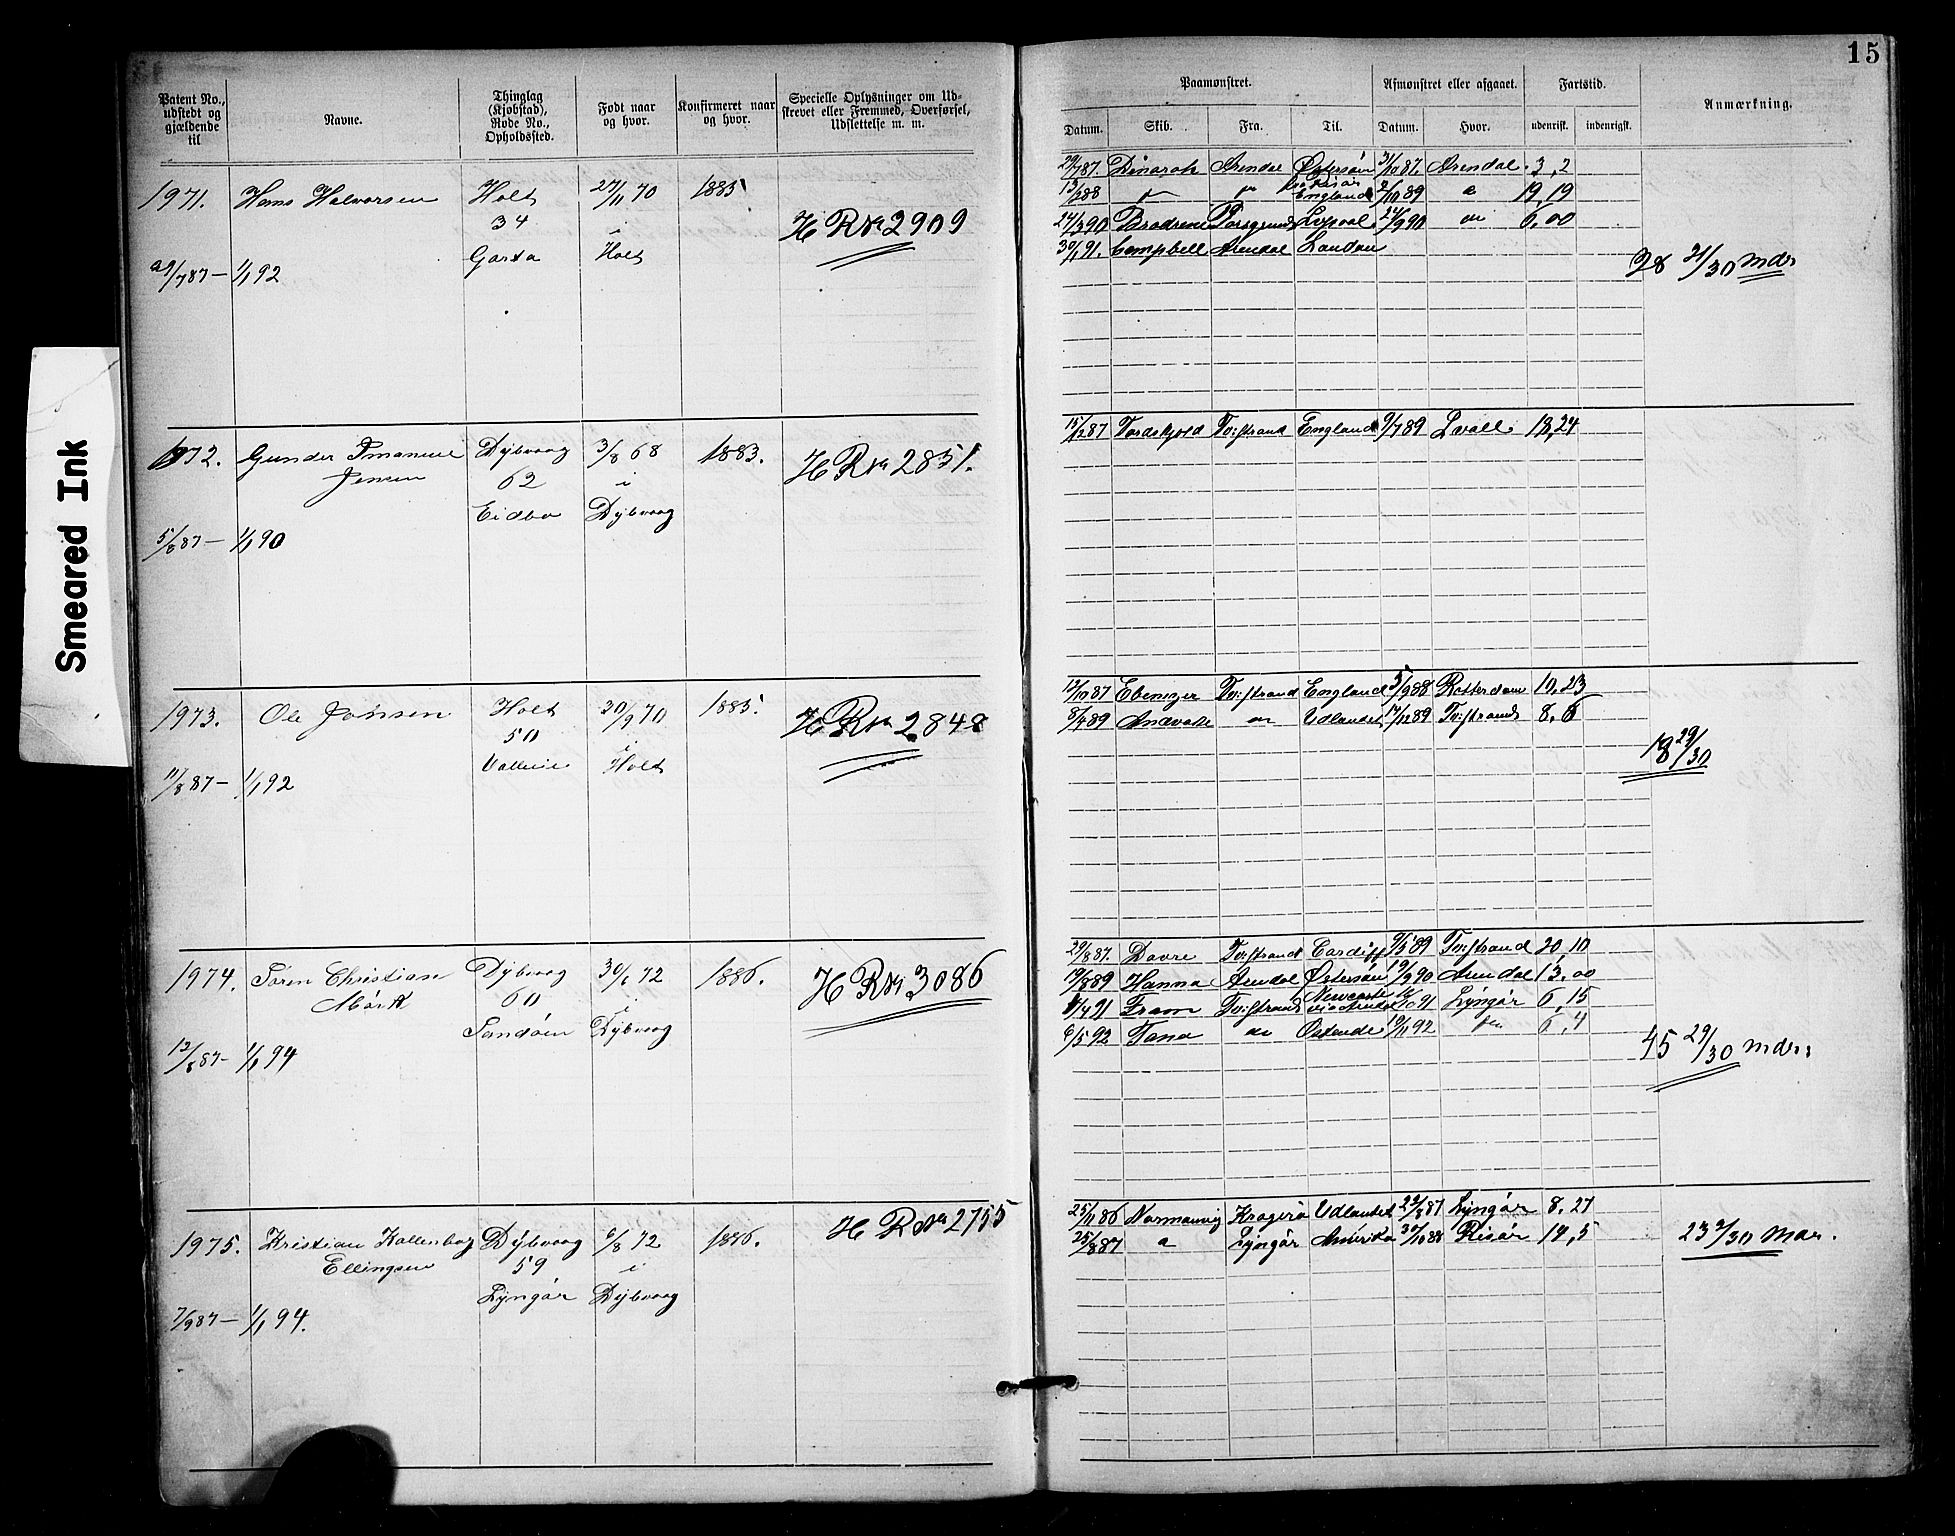 15
Patent No., udstedt og gjældende til
Navne.
Thinglag (Kjøbstad), Rode No., Opholdssted.
Født naar og hvor.
Konfirmeret naar og hvor.
Specielle Oplysninger om Udskrevet eller Fremmed, Overførsel, Udslettelse m. m.
Paamønstret.
Afmønstret eller afgaaet.
Fartstid.
Anmærkning.
Datum. Skib. Fra. Til. Datum. Hvor. udenrigsk. indenrigsk.
1971. Hans Halvorsen Holt 27/11 70 1885
34 i
Garta Holt
H R No 2909
29/7 87 — 1/1 92
29/7 87. Dinarah Arendal Østersøen 31/10 87. Arendal 3, 2
England 2/10 89 19, 19
24/3 90 Brødrene Porsgrund 24/9 90 6,00
30/1 91. Campbell Arendal London
28 21/30 mdr
1972. Gunder Imanuel Dybvaag 3/8 68 1883.
Jensen 62 i
Eidbo Dybvaag
H R No 2851.
5/8 87 — 1/1 90
15/12 87 Tordskjold Tvistrand England 9/7 89 18,24
1973. Ole Jonsen Holt 30/9 70 1885.
50 i
Holt
H R No 2848
11/8 87 — 1/1 92
12/10 87 Ebenezer Tvistrand England 5/9 88 Rotterdam 10,23
8/4 89 Udlandet 14/12 89 Tvistrand 8, 6
18 29/30
1974. Søren Christian Dybvaag 30/6 72 1886.
Mørk 60 i
Sandøen Dybvaag
H R No 3086
13/8 87 — 1/1 94
29/8 87. Dovre Tvistrand Cardiff 9/5 89 Tvistrand 20, 10
19/8 89 Hanna Arendal Østersøen 19/9 90 Arendal 13,00
1/4 91 Fram Tvistrand Newcastle via Arendal 16/10 91 Lyngør 6, 15
6/5 92 Tana Ostende 10/11 92 6, 4
45 29/30 mdr.
1975. Kristian Kallenbog Dybvaag 6/8 72 1886.
Ellingsen 59 i
Lyngør Dybvaag
H R No 2755
7/9 87 — 1/1 94.
25/11 86 Normanvig Kragerø Udlandet 22/8 87 Lyngør 8, 27
25/8 87 Lyngør Amerika 30/10 88 Risør 14, 5
23 2/30 Mdr.
Smeared Ink